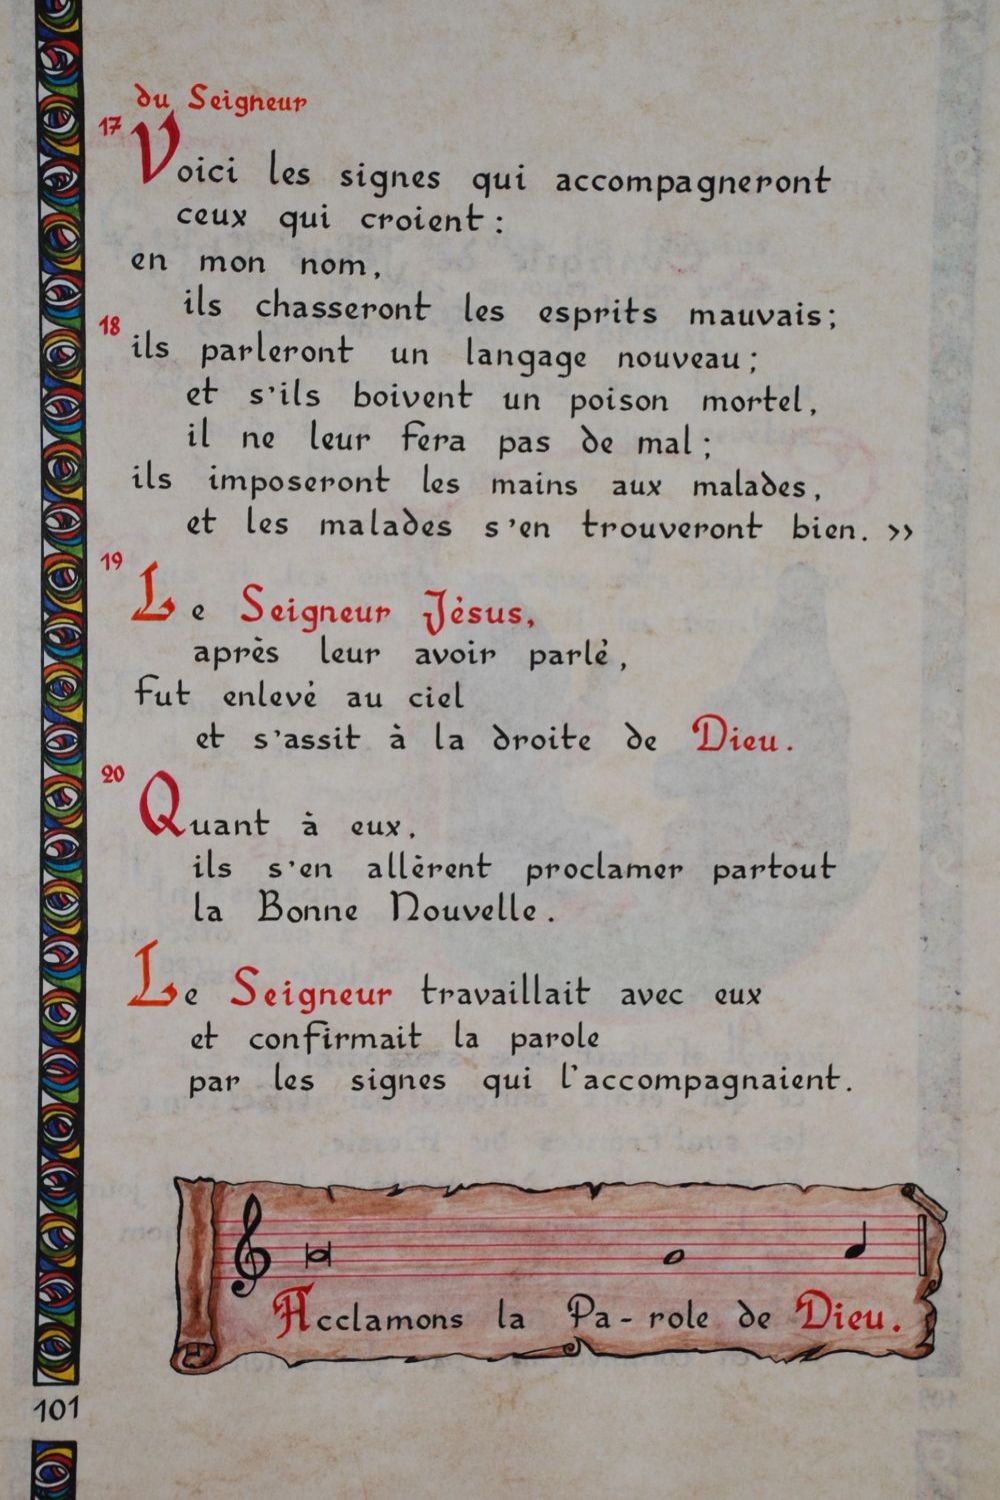 du Seigneur
17 Voici les signes qui accompagneront
ceux qui croient :
en mon nom,
ils chasseront les esprits mauvais ;
18 ils parleront un langage nouveau ;
et s'ils boivent un poison mortel,
il ne leur fera pas de mal ;
ils imposeront les mains aux malades,
et les malades s'en trouveront bien. »
19 Le Seigneur Jésus,
après leur avoir parlé,
fut enlevé au ciel
et s'assit à la droite de Dieu.
20 Quant à eux,
ils s'en allèrent proclamer partout
la Bonne Nouvelle.
Le Seigneur travaillait avec eux
et confirmait la parole
par les signes qui l'accompagnaient.
Acclamons la Pa - role de Dieu.
101